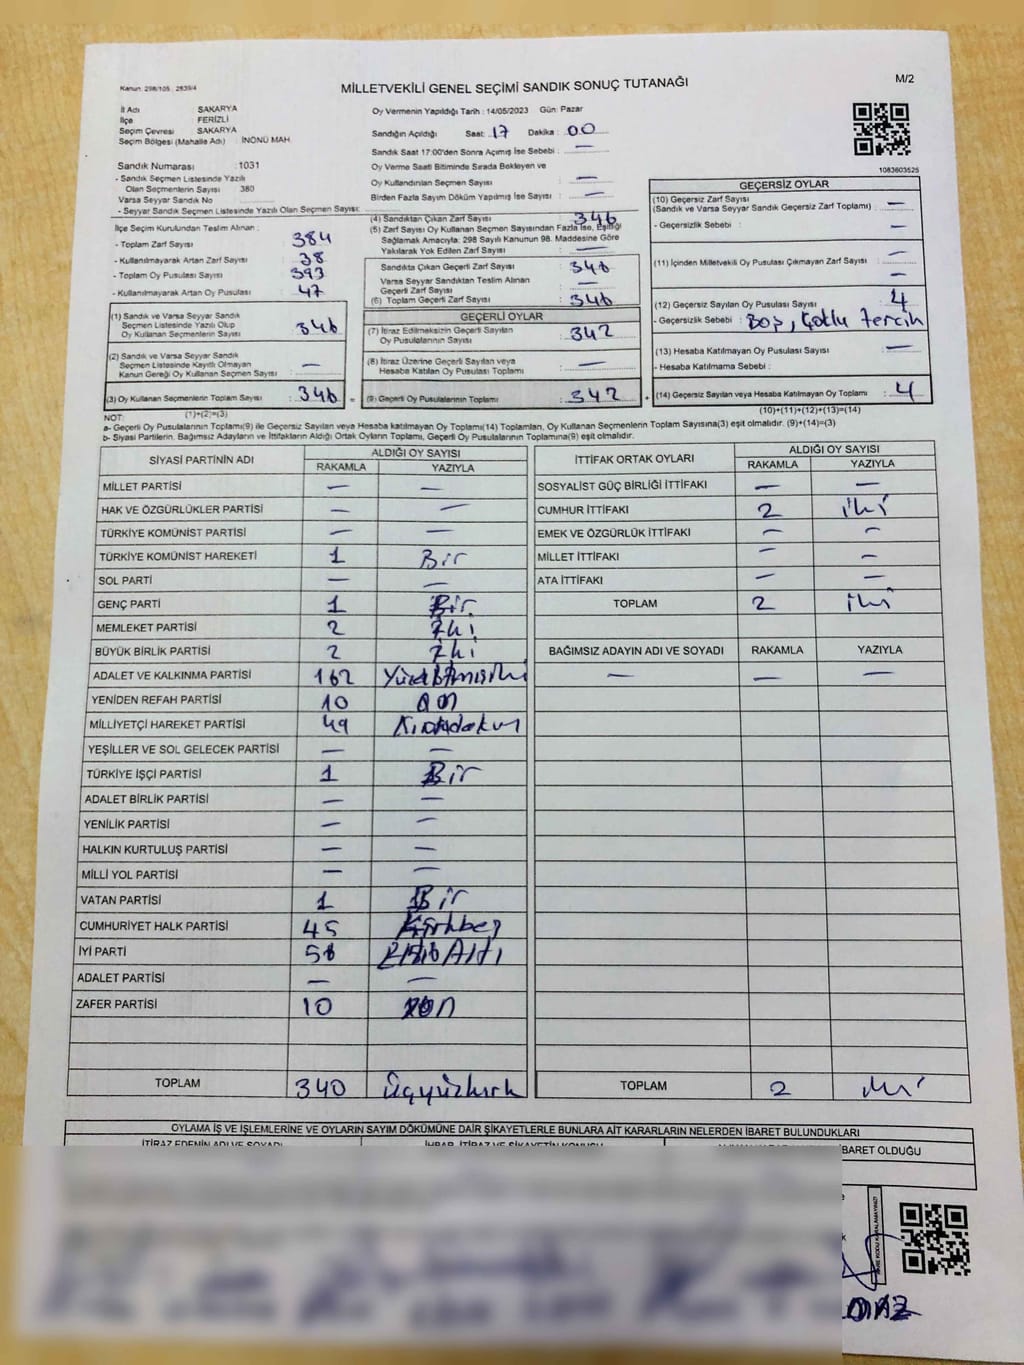 Kanun: 298/105, 2839/4
MİLLETVEKİLİ GENEL SEÇİMİ SANDIK SONUÇ TUTANAĞI
M/2
İl Adı SAKARYA
İlçe FERİZLİ
Seçim Çevresi SAKARYA
Seçim Bölgesi (Mahalle Adı) : İNÖNÜ MAH.
Sandık Numarası : 1031
- Sandık Seçmen Listesinde Yazılı
Olan Seçmenlerin Sayısı 380
Varsa Seyyar Sandık No
- Seyyar Sandık Seçmen Listesinde Yazılı Olan Seçmen Sayısı:
Oy Vermenin Yapıldığı Tarih : 14/05/2023 Gün: Pazar
Sandığın Açıldığı Saat: 17 Dakika : 00
Sandık Saat 17:00'den Sonra Açımış İse Sebebi : —
Oy Verme Saati Bitiminde Sırada Bekleyen ve
Oy Kullandırılan Seçmen Sayısı : —
Birden Fazla Sayım Döküm Yapılmış İse Sayısı : —
1083603525
İlçe Seçim Kurulundan Teslim Alınan :
- Toplam Zarf Sayısı : 384
- Kullanılmayarak Artan Zarf Sayısı : 38
- Toplam Oy Pusulası Sayısı : 393
- Kullanılmayarak Artan Oy Pusulası : 47
(1) Sandık ve Varsa Seyyar Sandık
Seçmen Listesinde Yazılı Olup
Oy Kullanan Seçmenlerin Sayısı : 346
(2) Sandık ve Varsa Seyyar Sandık
Seçmen Listesinde Kayıtlı Olmayan
Kanun Gereği Oy Kullanan Seçmen Sayısı : —
(3) Oy Kullanan Seçmenlerin Toplam Sayısı : 346 =
(1)+(2)=(3)
(4) Sandıktan Çıkan Zarf Sayısı : 346
(5) Zarf Sayısı Oy Kullanan Seçmen Sayısından Fazla İse, Eşitliği
Sağlamak Amacıyla: 298 Sayılı Kanunun 98. Maddesine Göre
Yakılarak Yok Edilen Zarf Sayısı : —
Sandıkta Çıkan Geçerli Zarf Sayısı : 346
Varsa Seyyar Sandıktan Teslim Alınan
Geçerli Zarf Sayısı : —
(6) Toplam Geçerli Zarf Sayısı : 346
GEÇERLİ OYLAR
(7) İtiraz Edilmeksizin Geçerli Sayılan
Oy Pusulalarının Sayısı : 342
(8) İtiraz Üzerine Geçerli Sayılan veya
Hesaba Katılan Oy Pusulası Toplamı : —
(9) Geçerli Oy Pusulalarının Toplamı : 342 +
GEÇERSİZ OYLAR
(10) Geçersiz Zarf Sayısı
(Sandık ve Varsa Seyyar Sandık Geçersiz Zarf Toplamı) : —
- Geçersizlik Sebebi : —
(11) İçinden Milletvekili Oy Pusulası Çıkmayan Zarf Sayısı : —
—
(12) Geçersiz Sayılan Oy Pusulası Sayısı : 4
- Geçersizlik Sebebi : Boş, Çoklu tercih
(13) Hesaba Katılmayan Oy Pusulası Sayısı : —
- Hesaba Katılmama Sebebi :
(14) Geçersiz Sayılan veya Hesaba Katılmayan Oy Toplamı : 4
(10)+(11)+(12)+(13)=(14)
NOT:
a- Geçerli Oy Pusulalarının Toplamı(9) ile Geçersiz Sayılan veya Hesaba Katılmayan Oy Toplamı(14) Toplamları, Oy Kullanan Seçmenlerin Toplam Sayısına(3) eşit olmalıdır. (9)+(14)=(3)
b- Siyasi Partilerin, Bağımsız Adayların ve İttifakların Aldığı Ortak Oyların Toplamı, Geçerli Oy Pusulalarının Toplamına(9) eşit olmalıdır.
SİYASİ PARTİNİN ADI ALDIĞI OY SAYISI
RAKAMLA YAZIYLA
MİLLET PARTİSİ — —
HAK VE ÖZGÜRLÜKLER PARTİSİ — —
TÜRKİYE KOMÜNİST PARTİSİ — —
TÜRKİYE KOMÜNİST HAREKETİ 1 Bir
SOL PARTİ — —
GENÇ PARTİ 1 Bir
MEMLEKET PARTİSİ 2 İki
BÜYÜK BİRLİK PARTİSİ 2 İki
ADALET VE KALKINMA PARTİSİ 162 Yüzaltmışiki
YENİDEN REFAH PARTİSİ 10 On
MİLLİYETÇİ HAREKET PARTİSİ 49 Kırkdokuz
YEŞİLLER VE SOL GELECEK PARTİSİ — —
TÜRKİYE İŞÇİ PARTİSİ 1 Bir
ADALET BİRLİK PARTİSİ — —
YENİLİK PARTİSİ — —
HALKIN KURTULUŞ PARTİSİ — —
MİLLİ YOL PARTİSİ — —
VATAN PARTİSİ 1 Bir
CUMHURİYET HALK PARTİSİ 45 Kırkbeş
İYİ PARTİ 56 Elli Altı
ADALET PARTİSİ — —
ZAFER PARTİSİ 10 On
TOPLAM 340 Üçyüzkırk
İTTİFAK ORTAK OYLARI ALDIĞI OY SAYISI
RAKAMLA YAZIYLA
SOSYALİST GÜÇ BİRLİĞİ İTTİFAKI — —
CUMHUR İTTİFAKI 2 iki
EMEK VE ÖZGÜRLÜK İTTİFAKI — —
MİLLET İTTİFAKI — —
ATA İTTİFAKI — —
TOPLAM 2 iki
BAĞIMSIZ ADAYIN ADI VE SOYADI RAKAMLA YAZIYLA
— — —
TOPLAM 2 iki
OYLAMA İŞ VE İŞLEMLERİNE VE OYLARIN SAYIM DÖKÜMÜNE DAİR ŞİKAYETLERLE BUNLARA AİT KARARLARIN NELERDEN İBARET BULUNDUKLARI
İTİRAZ EDENİN ADI VE SOYADI İHBAR, İTİRAZ VE ŞİKAYETİN KONUSU
İBARET OLDUĞU